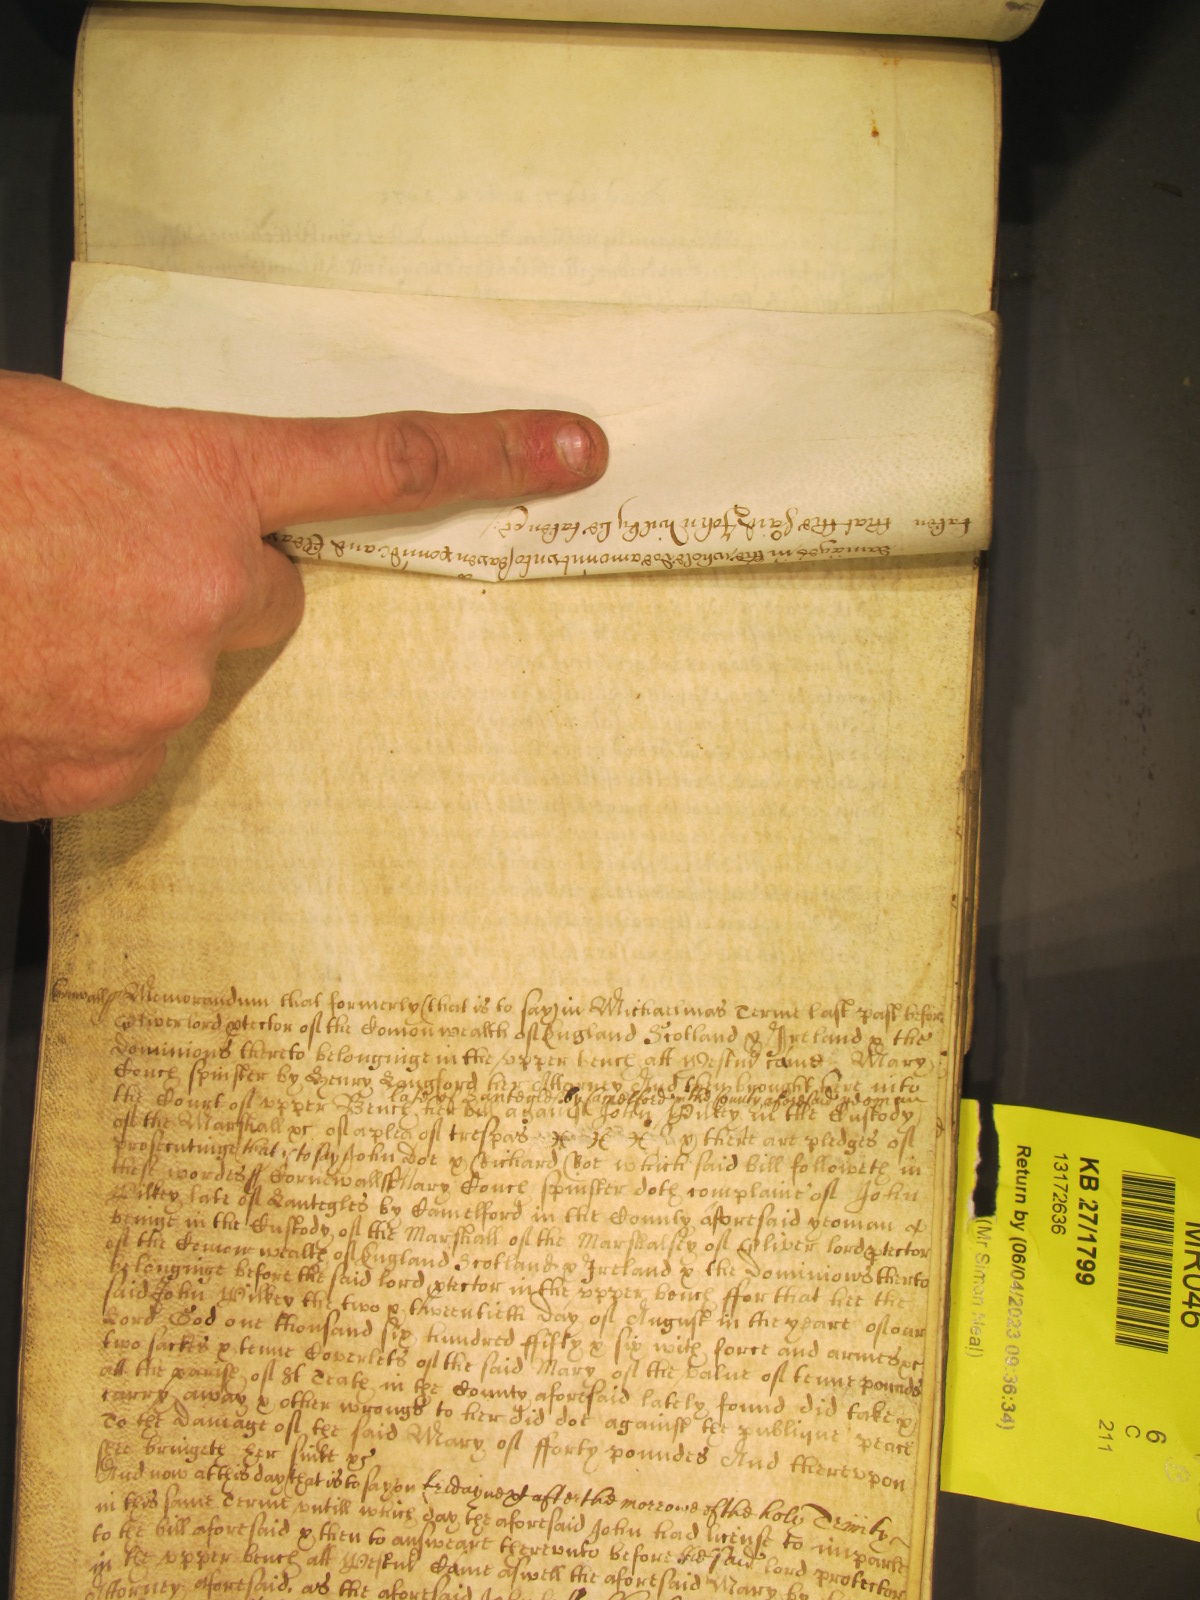 taken that the said John Wilky be taken &c
damages in the whole doe amount vnto seaven pounds and
Cornwall ss Memorandum that formerly (that is to say) in Michaelmas Terme last past before
Oliver lord ptector of the Comon wealth of England Scotland & Ireland & the
dominions thereto belonginge in the vpper bench att Westm came Mary
Couch spinster by Henry Langford her Attorney And then brought here into
late of Lantegles by Camelford in the County aforesaid yeoman
the Court of vpper Bench her bill against John Wilkey in the Custody
of the Marshall &c of a plea of trespas & there are pledges of
prosecutinge that is to say John Doe & Richard Roe which said bill followeth in
these wordes ss Cornewall ss Mary Couch spinster doth complaine of John
Wilkey late of Lantegles by Camelford in the County aforesaid yeoman &
beinge in the Custody of the Marshall of the Marshalsey of Oliver lord ptector
of the Comon wealth of England Scotland & Ireland & the Dominions therto
belonginge before the said lord ptector in the vpper bench ffor that hee the
said John Wilkey the two & twentieth day of August in the yeare of our
Lord God one thousand six hundred ffifty & six with force and armes &c
two sackes & tenne Coverlets of the said Mary of the value of tenne pounds
att the parish of St Teath in the County aforesaid lately found did take &
carry away & other wrongs to her did doe against the publique peace
To the damage of the said Mary of fforty poundes And therevpon
shee bringeth her suite &c
And now at this day (that is to say) on fryday next after the morrowe of the holy Trinity
in this same Terme vntill which day the aforesaid John had license to imparle
to the bill aforesaid & then to answeare therevnto before the said lord protector
in the vpper bench att Westm Came aswell the aforesaid Mary by her
Attorney aforesaid. as the aforesaid John
MR046
KB 27/1799
13172636
Return by (06/04/2023 09:36:34)
(Mr Simon Neal)
6
C
211